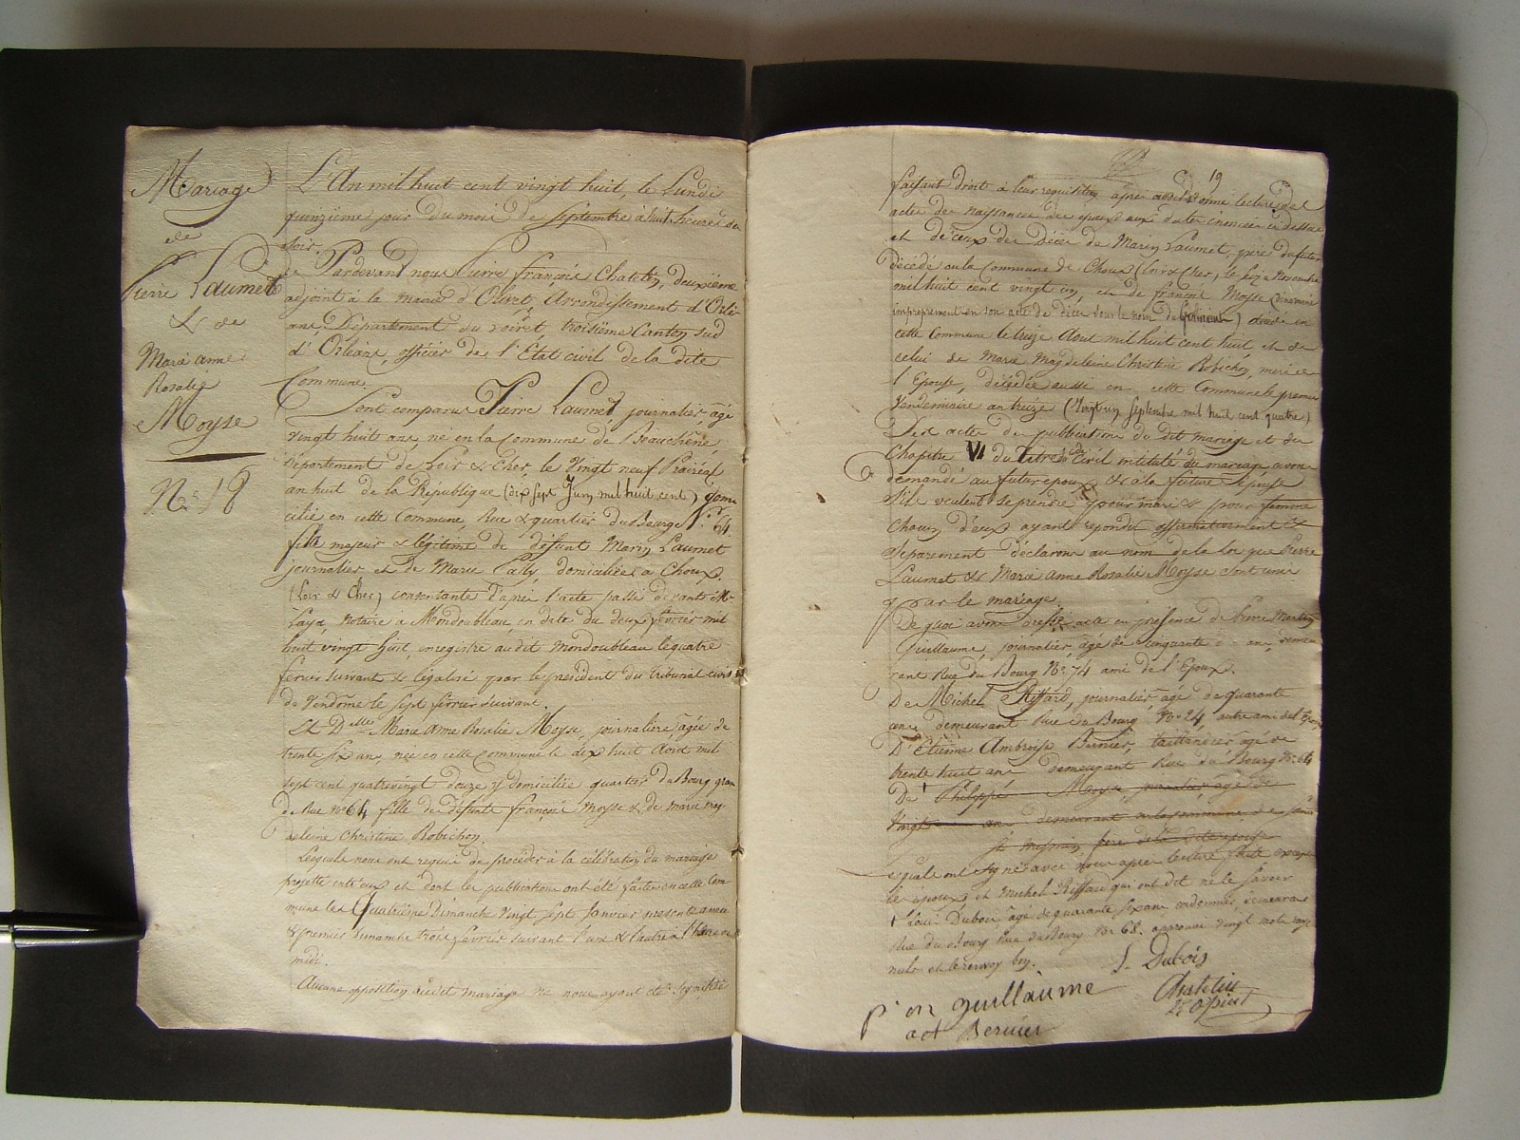 Mariage
de
Pierre Laumet
& de
Marie anne
Rosalie
Moyse
No. 18
L'An mil huit cent vingt huit, le Lundi
quinzième jour du mois de Septembre à huit heures du
soir.
Pardevant nous Pierre françois Chatelin, deuxième
adjoint à la mairie d'Olivet, Arrondissement d'Orlé-
ans, Département du Loiret, troisième Canton sud
d'Orléans, officier de l'Etat civil de la dite
Commune.
Sont comparus Pierre Laumet journalier âgé
vingt huit ans, né en la Commune de Beauchêne,
département de Loir & Cher, le Vingt neuf Prairéal
an huit de la République (dix sept Juin mil huit cent) domi
cilié en cette Commune, Rue & quartier du Bourg No. 64.
fils majeur & légitime de défunt Marin Laumet
journalier et de Marie Pally, domiciliée à Choux.
(Loir & Cher) consentante d'après l'acte passé devant M
notaire à Mondoubleau, en date du deux février mil
huit vingt huit, enregistré audit Mondoubleau le quatre
février suivant & légalisé par le président du tribunal civil
de Vendôme le sept février suivant.
Et Delle Marie Anne Rosalie Moyse, journalière âgée de
trente six ans, née en cette Commune le dix huit Août mil
sept cent quatrevingt douze y domiciliée quartier du Bourg gran
de Rue No 64 fille de défunts françois Moyse & de marie mag
deleine Christine Robichon.
Lesquels nous ont requis de procéder à la célébration du mariage
projetté entr'eux et dont les publications ont été faites en cette Com-
mune les Quatrième Dimanche Vingt Sept Janvier présente année
& premier dimanche trois février suivant l'une & l'autre à l'heure de
midi.
Aucune opposition audit mariage ne nous ayant été signifiée
19
faisant droit à leur requisition après avoir donné lecture des
actes de naissance des époux aux dates énoncées ci dessus
et de ceux de décès de Marin Laumet, père du futur
décédé en la Commune de Choux (Loir & Cher), le six Novembre
mil huit cent vingt un, et de françois Moyse (dénommé
improprement en son acte de décès sous le nom de) décédé en
cette Commune le treize Aout mil huit cent huit et de
celui de Marie Magdeleine Christine Robichon, mère de
l'Epouse, décédée aussi en cette Commune le premier
Vendemiaire an treize (Vingt un Septembre mil huit cent quatre)
Des actes de publications de dit mariage et du
Chapitre VI du Titre du Code Civil intitulé du mariage, avons
demandé au futur époux & à la future épouse
s'ils veulent se prendre pour mari & pour femme
Chacun d'eux ayant répondu affirmativement &
séparément déclarons au nom de la loi que Pierre
Laumet & Marie Anne Rosalie Moyse sont unis
par le mariage.
De quoi avons dressé acte en présence de Pierre Martin
Guillaume, journalier, âgé de cinquante ans, demeu
rant Rue du Bourg No 74 ami de l'Epoux.
De Michel Riffard, journalier âgé de quarante
ans, demeurant Rue du Bourg No 24, autre ami del'Epoux
D'Etienne Ambroise Bernier, taillandier âgé de
trente huit ans demeurant Rue du Bourg No 64
De Philippe Moyse, journalier âgé de
Vingt ans demeurant en la commune
frère de la dite épouse
lesquels ont signé avec nous après lecture faite excepté
les époux et Michel Riffard qui ont dit ne le savoir
& Louis Dubois âgé de quarante six ans cordonnier, demeurant
Rue du Bourg No 68. approuvé vingt mots rayés
nuls et le renvoy bon.
L. Dubois
p're m guillaume
Chatelin
adt
ad Bernier